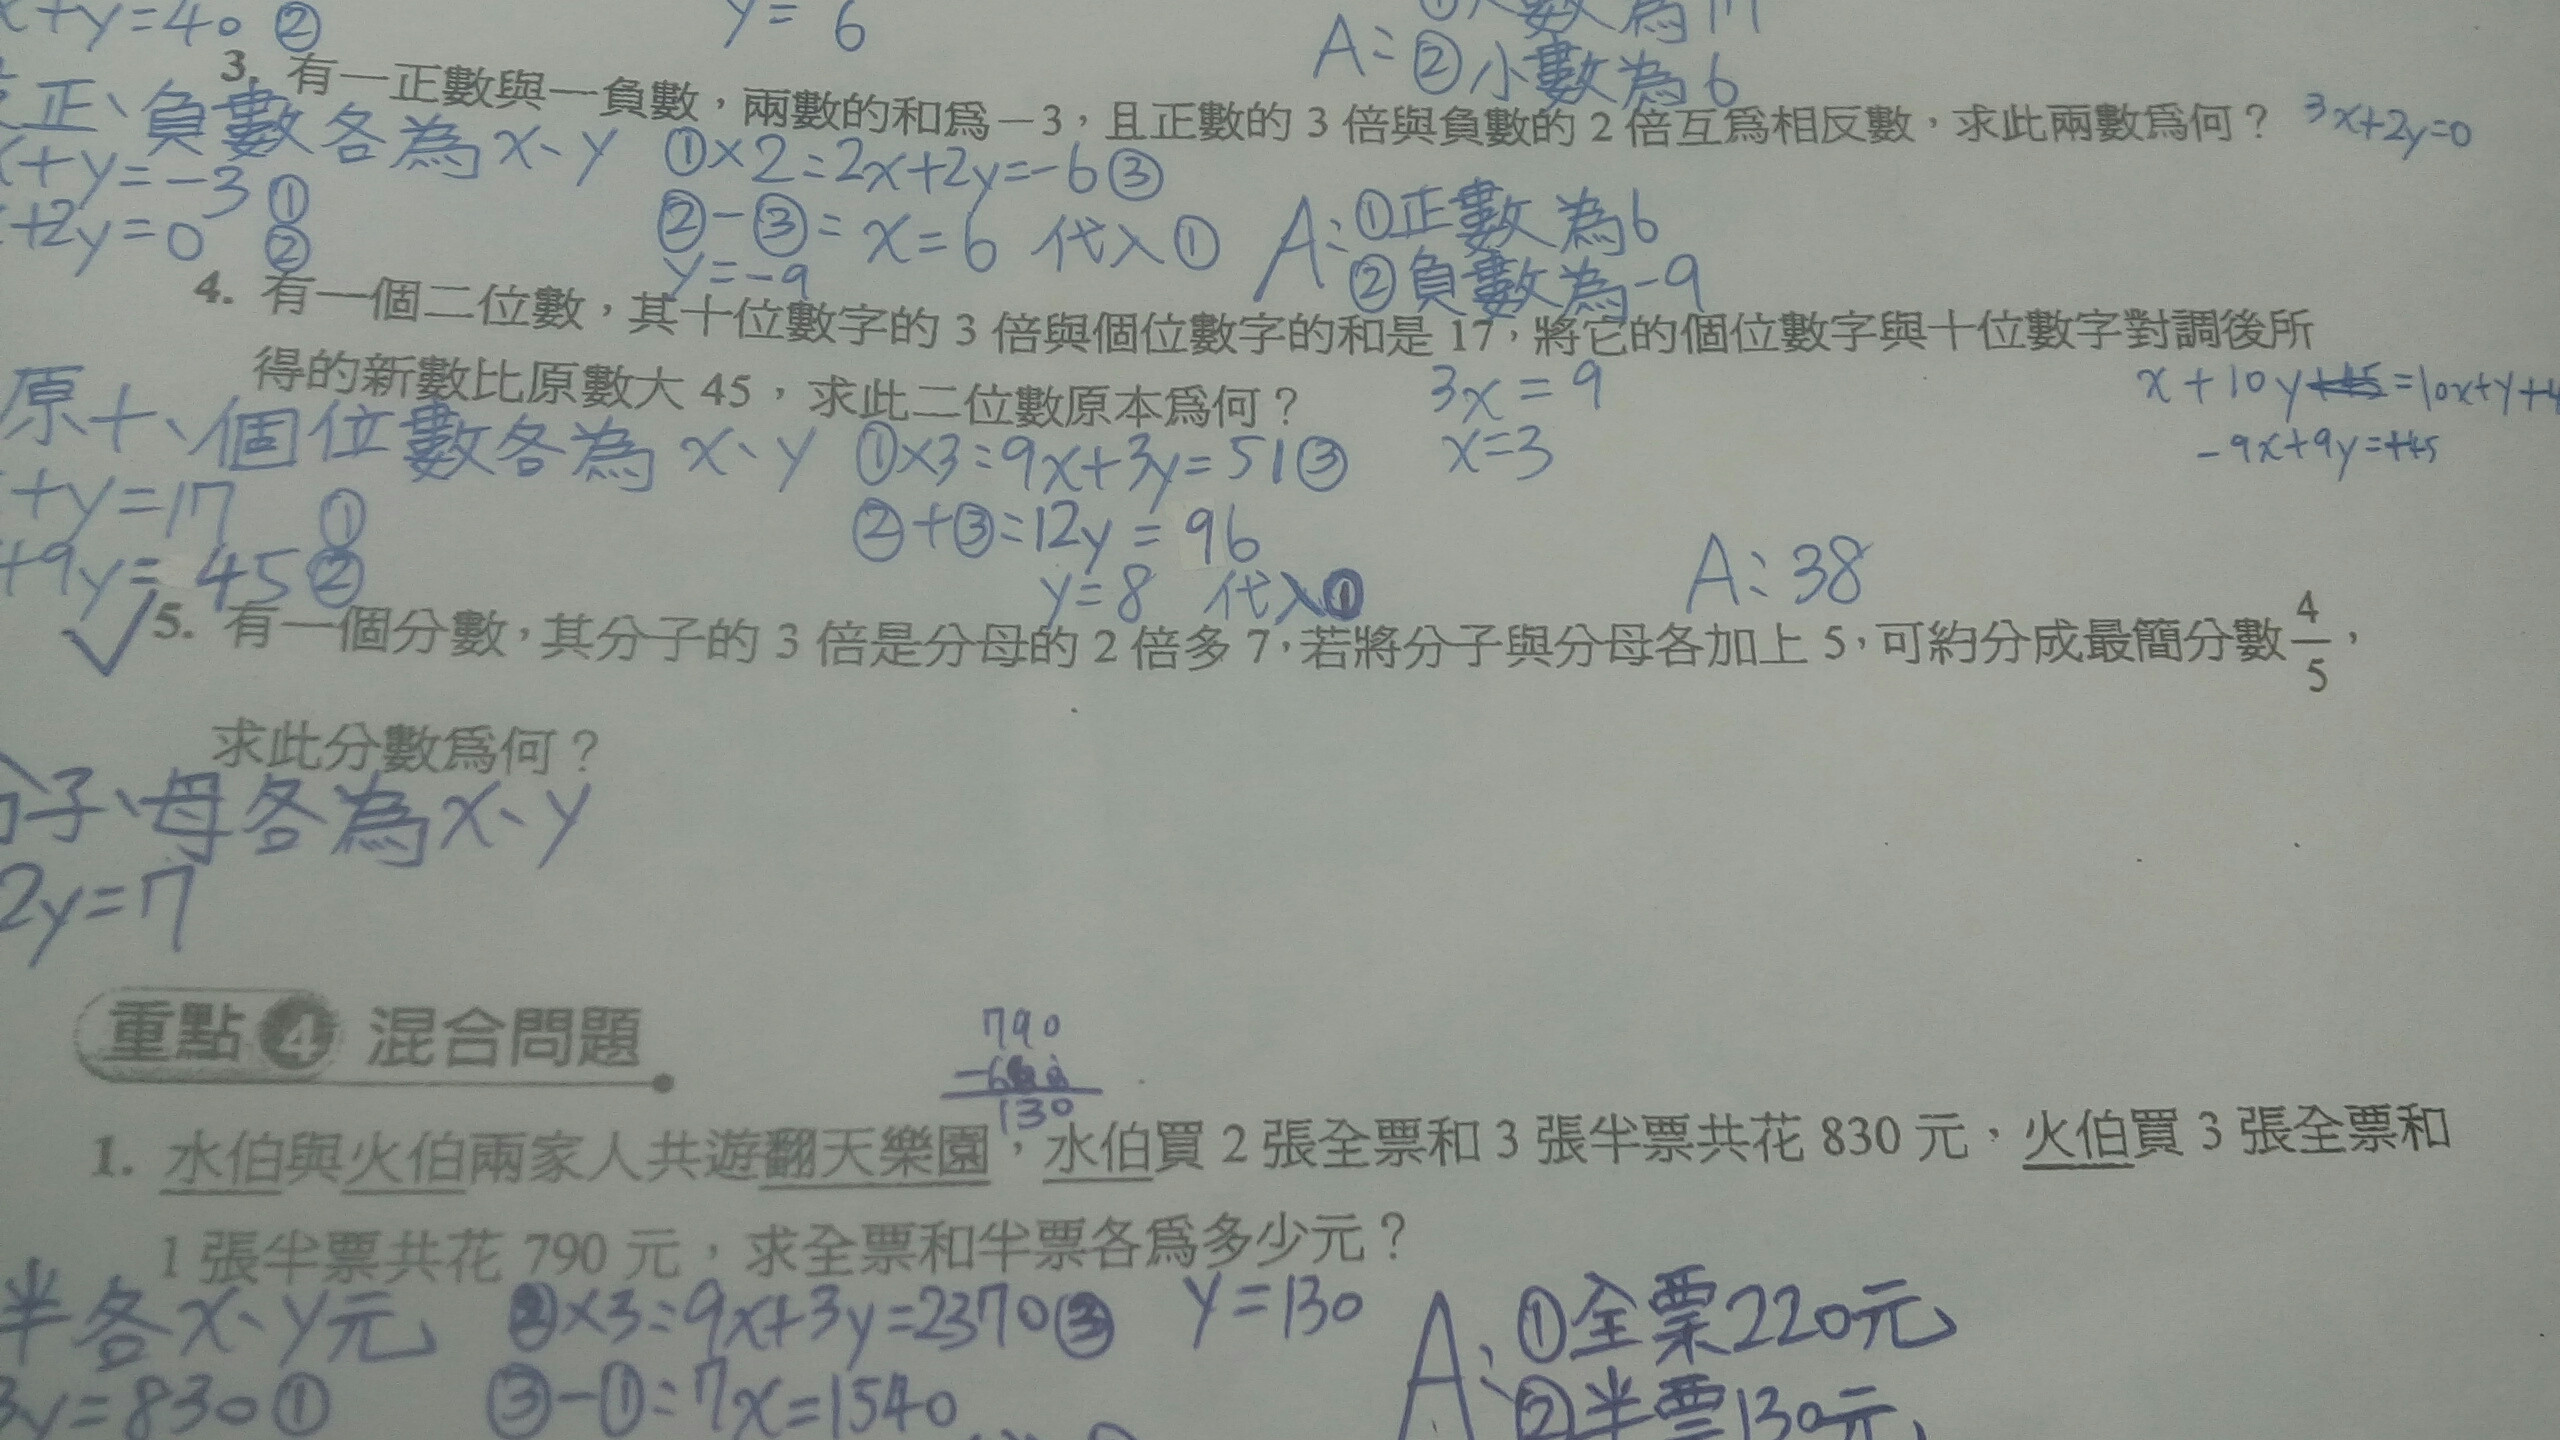 x+y=40 ②
y=6
A: ②小數為6
3. 有一正數與一負數，兩數的和為－3，且正數的3倍與負數的2倍互為相反數，求此兩數為何？
3x+2y=0
正、負數各為x、y
x+y=-3 ①
+2y=0 ②
①×2=2x+2y=-6③
②-③= x=6 代入①
y=-9
A: ①正數為6
②負數為-9
4. 有一個二位數，其十位數字的3倍與個位數字的和是17，將它的個位數字與十位數字對調後所
得的新數比原數大45，求此二位數原本為何？
x+10y=10x+y+4
-9x+9y=+45
原十、個位數各為x、y
+y=17 ①
+9y=45②
①×3=9x+3y=51③
②+③=12y=96
y=8 代入①
3x=9
x=3
A:38
5. 有一個分數，其分子的3倍是分母的2倍多7，若將分子與分母各加上5，可約分成最簡分數4/5，
求此分數為何？
子、母各為x、y
2y=7
重點4 混合問題
790
130
1. 水伯與火伯兩家人共遊翻天樂園，水伯買2張全票和3張半票共花830元，火伯買3張全票和
1張半票共花790元，求全票和半票各為多少元？
半各x、y元
3y=830①
②×3=9x+3y=2370③
③-①=7x=1540
y=130
A: ①全票220元
②半票130元